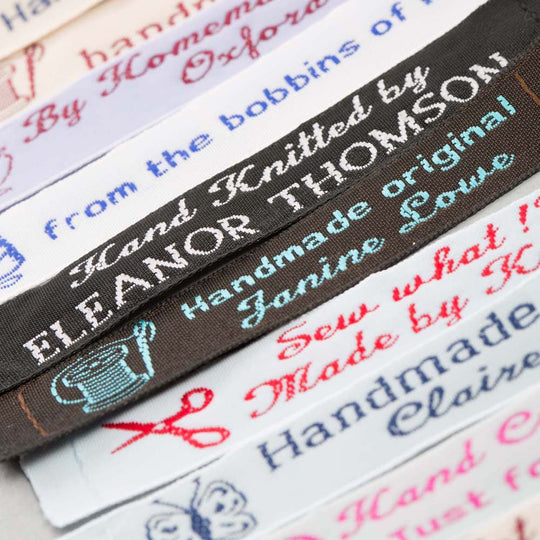 Han
handma
By Homema
Oxfor
from the bobbins of
Hand Knitted by
ELEANOR THOMSON
Handmade original
Janine Lowe
Sew what !?
Made by K
Handmade
Claire
Hand C
Just fo